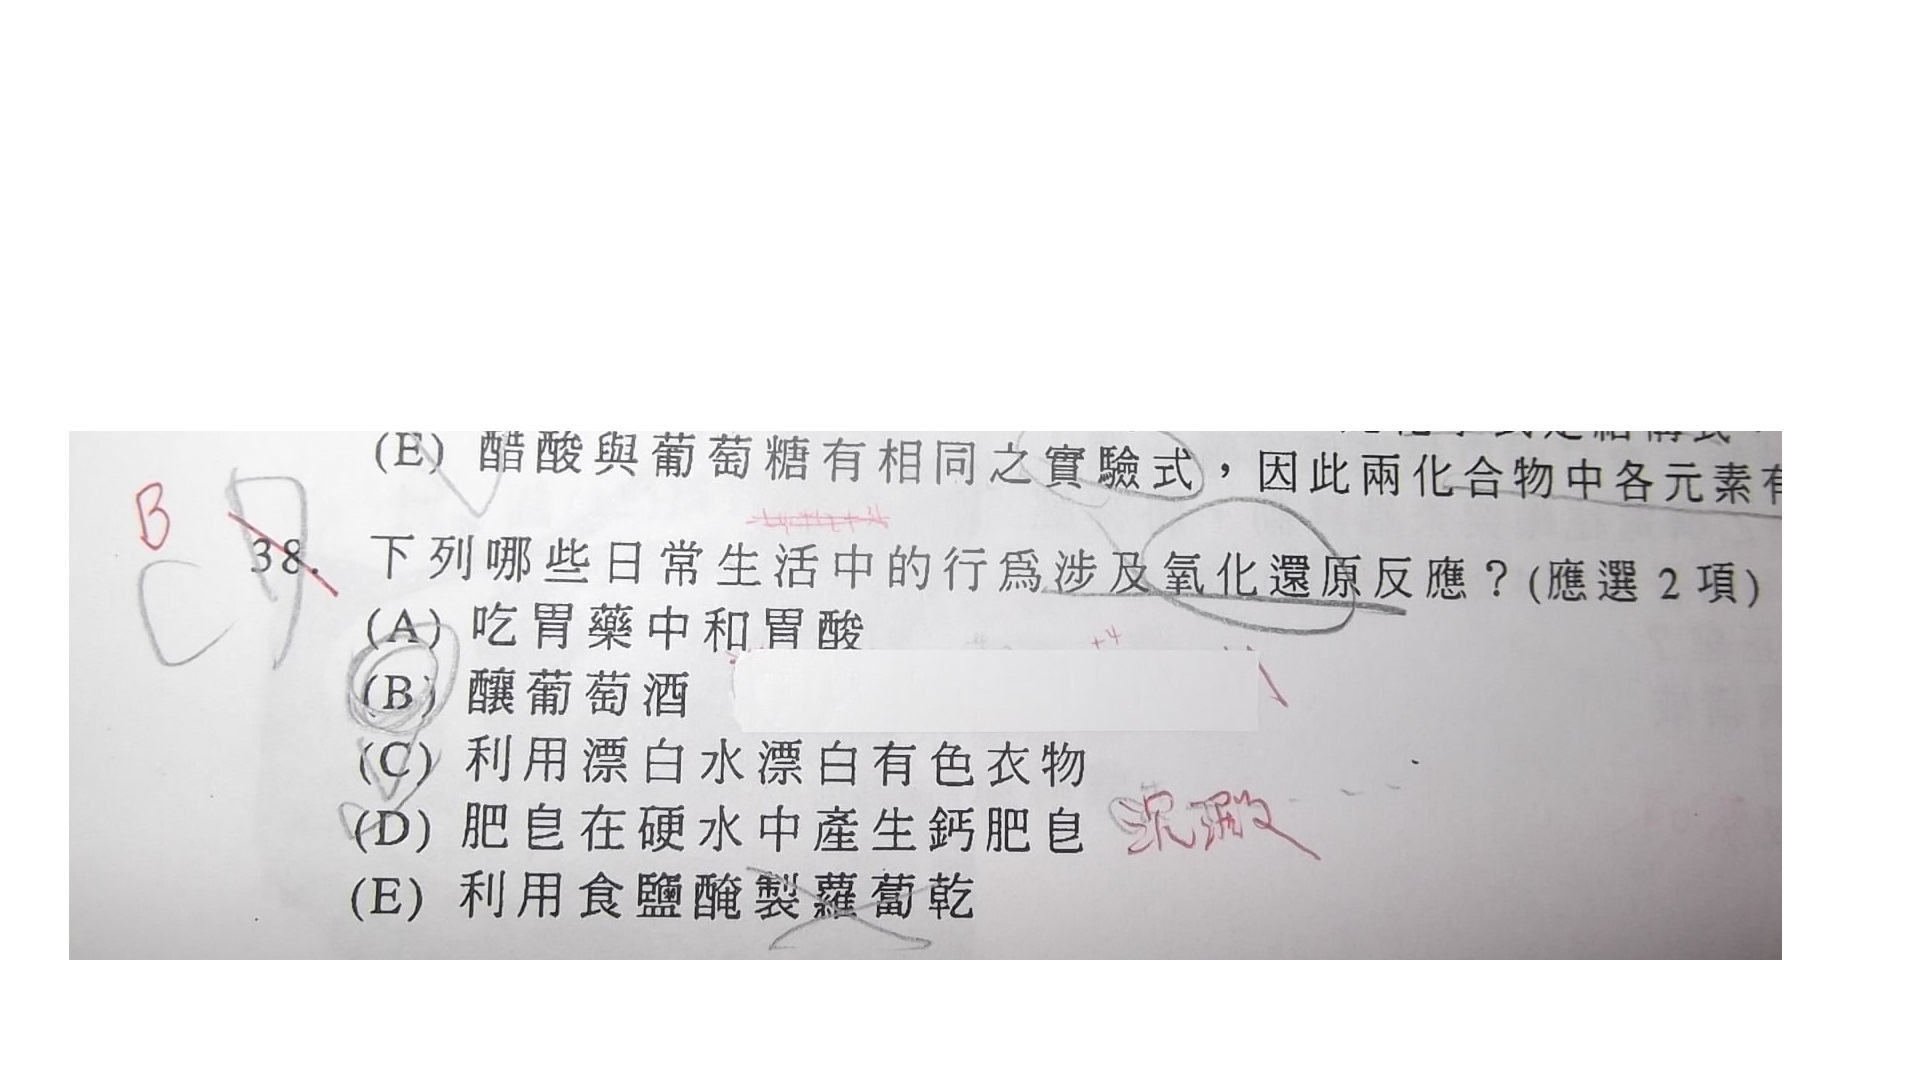 (E) 醋酸與葡萄糖有相同之實驗式，因此兩化合物中各元素有
B
C
38. 下列哪些日常生活中的行為涉及氧化還原反應？(應選 2 項)
(A) 吃胃藥中和胃酸
+4
(B) 釀葡萄酒
(C) 利用漂白水漂白有色衣物
(D) 肥皂在硬水中產生鈣肥皂 沉澱
(E) 利用食鹽醃製蘿蔔乾